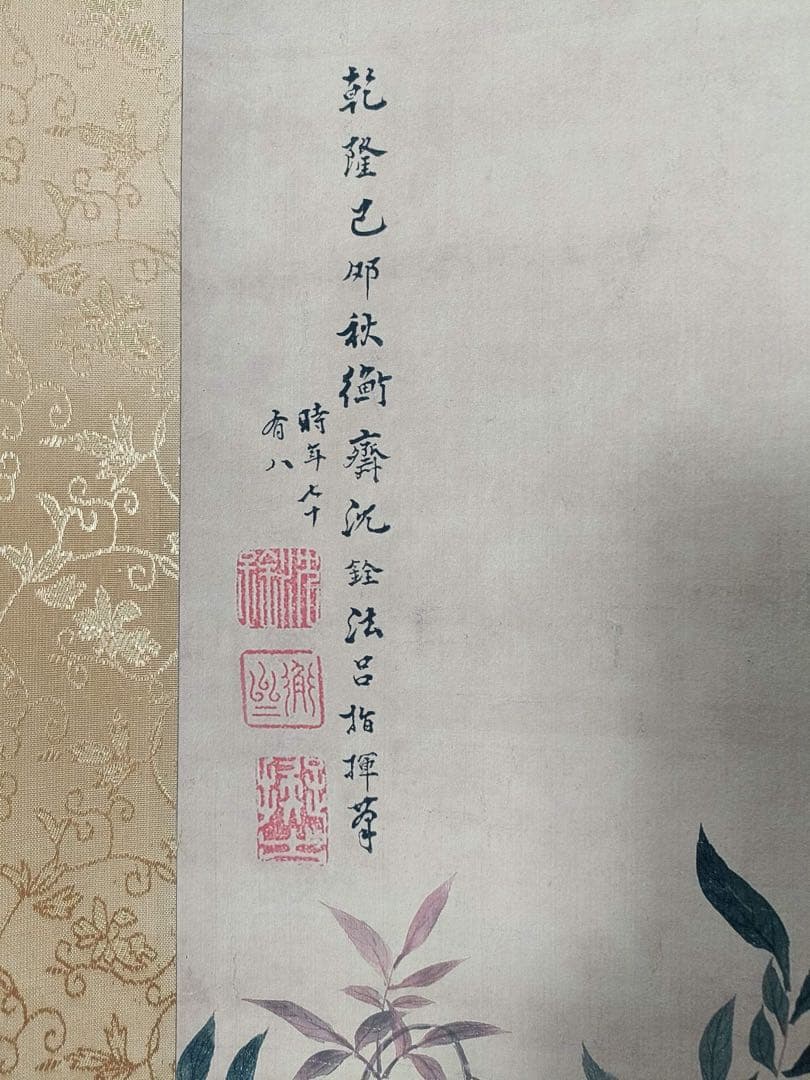 乾隆己卯秋衡齋沈銓法呂指揮筆
時年七十
有八
沈銓
衡之